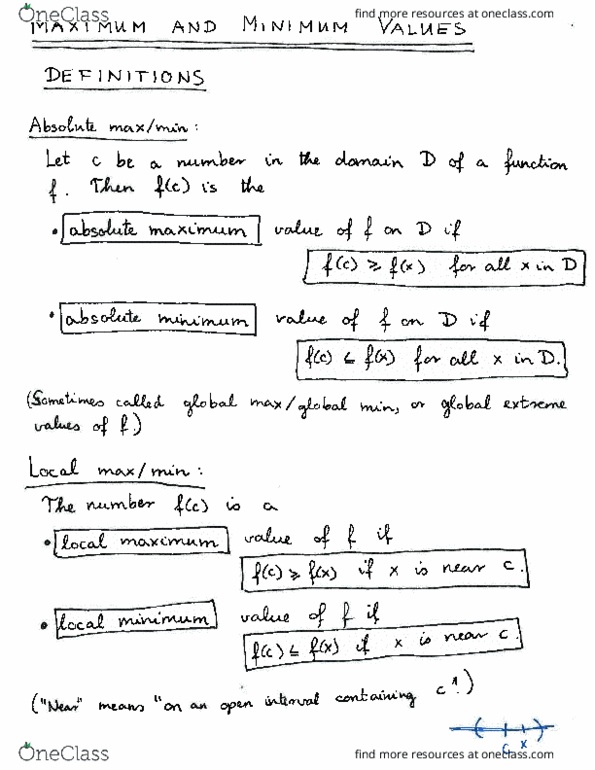 OneClass find more resources at oneclass.com
MAXIMUM AND MINIMUM VALUES
DEFINITIONS
Absolute max/min:
Let c be a number in the domain D of a function
f. Then f(c) is the
• absolute maximum value of f on D if
f(c) ≥ f(x) for all x in D
• absolute minimum value of f on D if
f(c) ≤ f(x) for all x in D.
(Sometimes called global max/global min, or global extreme
values of f.)
Local max/min:
The number f(c) is a
• local maximum value of f if
f(c) ≥ f(x) if x is near c.
• local minimum value of f if
f(c) ≤ f(x) if x is near c.
("Near" means "on an open interval containing c".)
c x
OneClass find more resources at oneclass.com